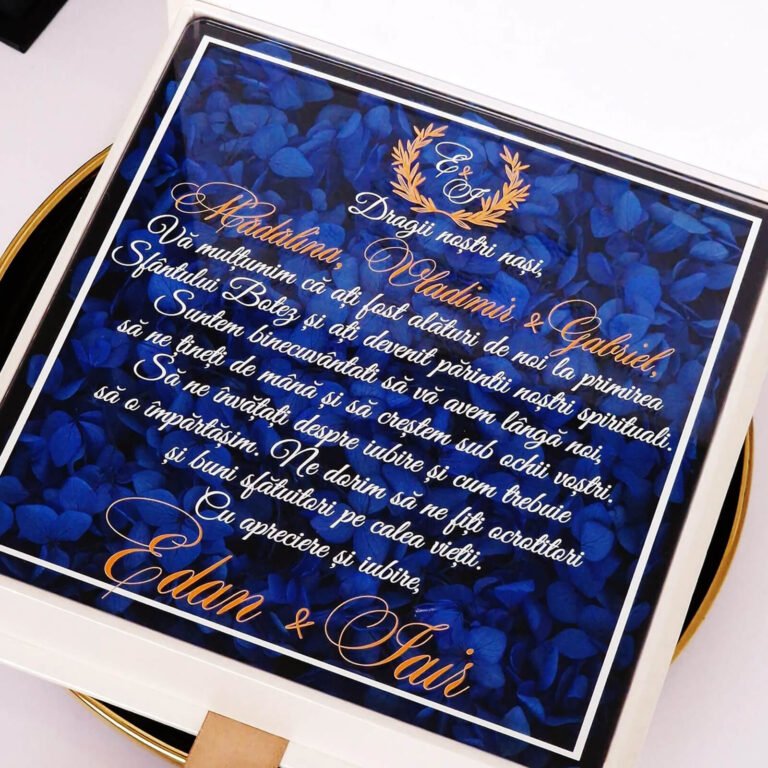 E & I
Dragii noștri nași,
Mădălina, Vladimir & Gabriel,
Vă mulțumim că ați fost alături de noi la primirea
Sfântului Botez și ați devenit părintii noștri spirituali.
Suntem binecuvântati să vă avem lângă noi,
să ne țineți de mână și să creștem sub ochii voștri.
Să ne învătați despre iubire și cum trebuie
să o împărtășim. Ne dorim să ne fiți ocrotitori
și buni sfătuitori pe calea vieții.
Cu apreciere și iubire,
Edan & Iair